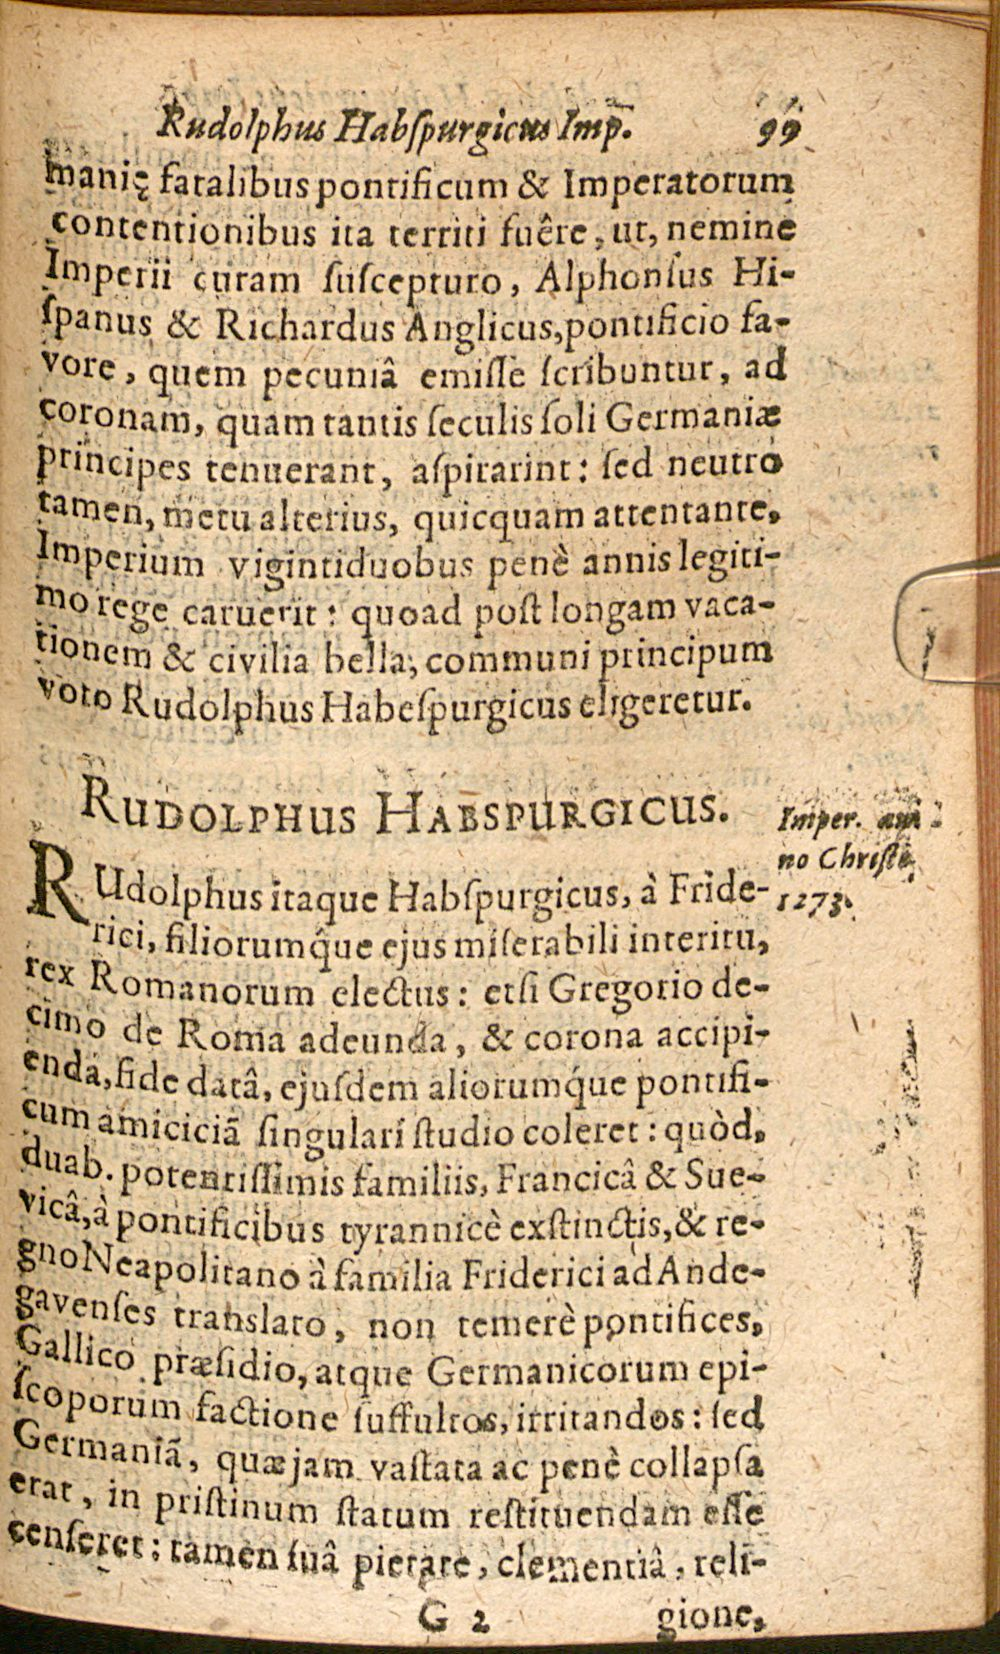 Rudolphus Habſpurgicus Imp. 99
manię fatalibus pontificum & Imperatorum
contentionibus ita territi fuêre, ut, nemine
Imperii curam ſuſcepturo, Alphonſus Hi-
ſpanus & Richardus Anglicus, pontificio fa-
vore, quem pecuniâ emiſſe ſcribuntur, ad
coronam, quam tantis ſeculis ſoli Germaniæ
principes tenuerant, aſpirarint: ſed neutro
tamen, metu alterius, quicquam attentante,
Imperium vigintiduobus penè annis legiti-
mo rege caruerit: quoad poſt longam vaca-
tionem & civilia bella, communi principum
voto Rudolphus Habeſpurgicus eligeretur.
RUDOLPHUS HABSPURGICUS.
Imper. an-
no Chriſti,
1273.
RUdolphus itaque Habſpurgicus, à Fride-
rici, filiorumq́ue ejus miſerabili interitu,
rex Romanorum electus: etſi Gregorio de-
cimo de Roma adeunda, & corona accipi-
enda, fide datâ, ejuſdem aliorumq́ue pontifi-
cum amiciciã ſingulari ſtudio coleret: quòd,
duab. potentiſſimis familiis, Francicâ & Sue-
vicâ, à pontificibus tyrannicè exſtinctis, & re-
gno Neapolitano à familia Friderici ad Ande-
gavenſes translato, non temerè pontifices,
Gallico præſidio, atque Germanicorum epi-
ſcoporum factione ſuffultos, irritandos: ſed
Germaniã, quæ jam vaſtata ac penè collapſa
erat, in priſtinum ſtatum reſtituendam eſſe
cenſeret: tamen ſuâ pietate, clementiâ, reli-
G 2 gione,